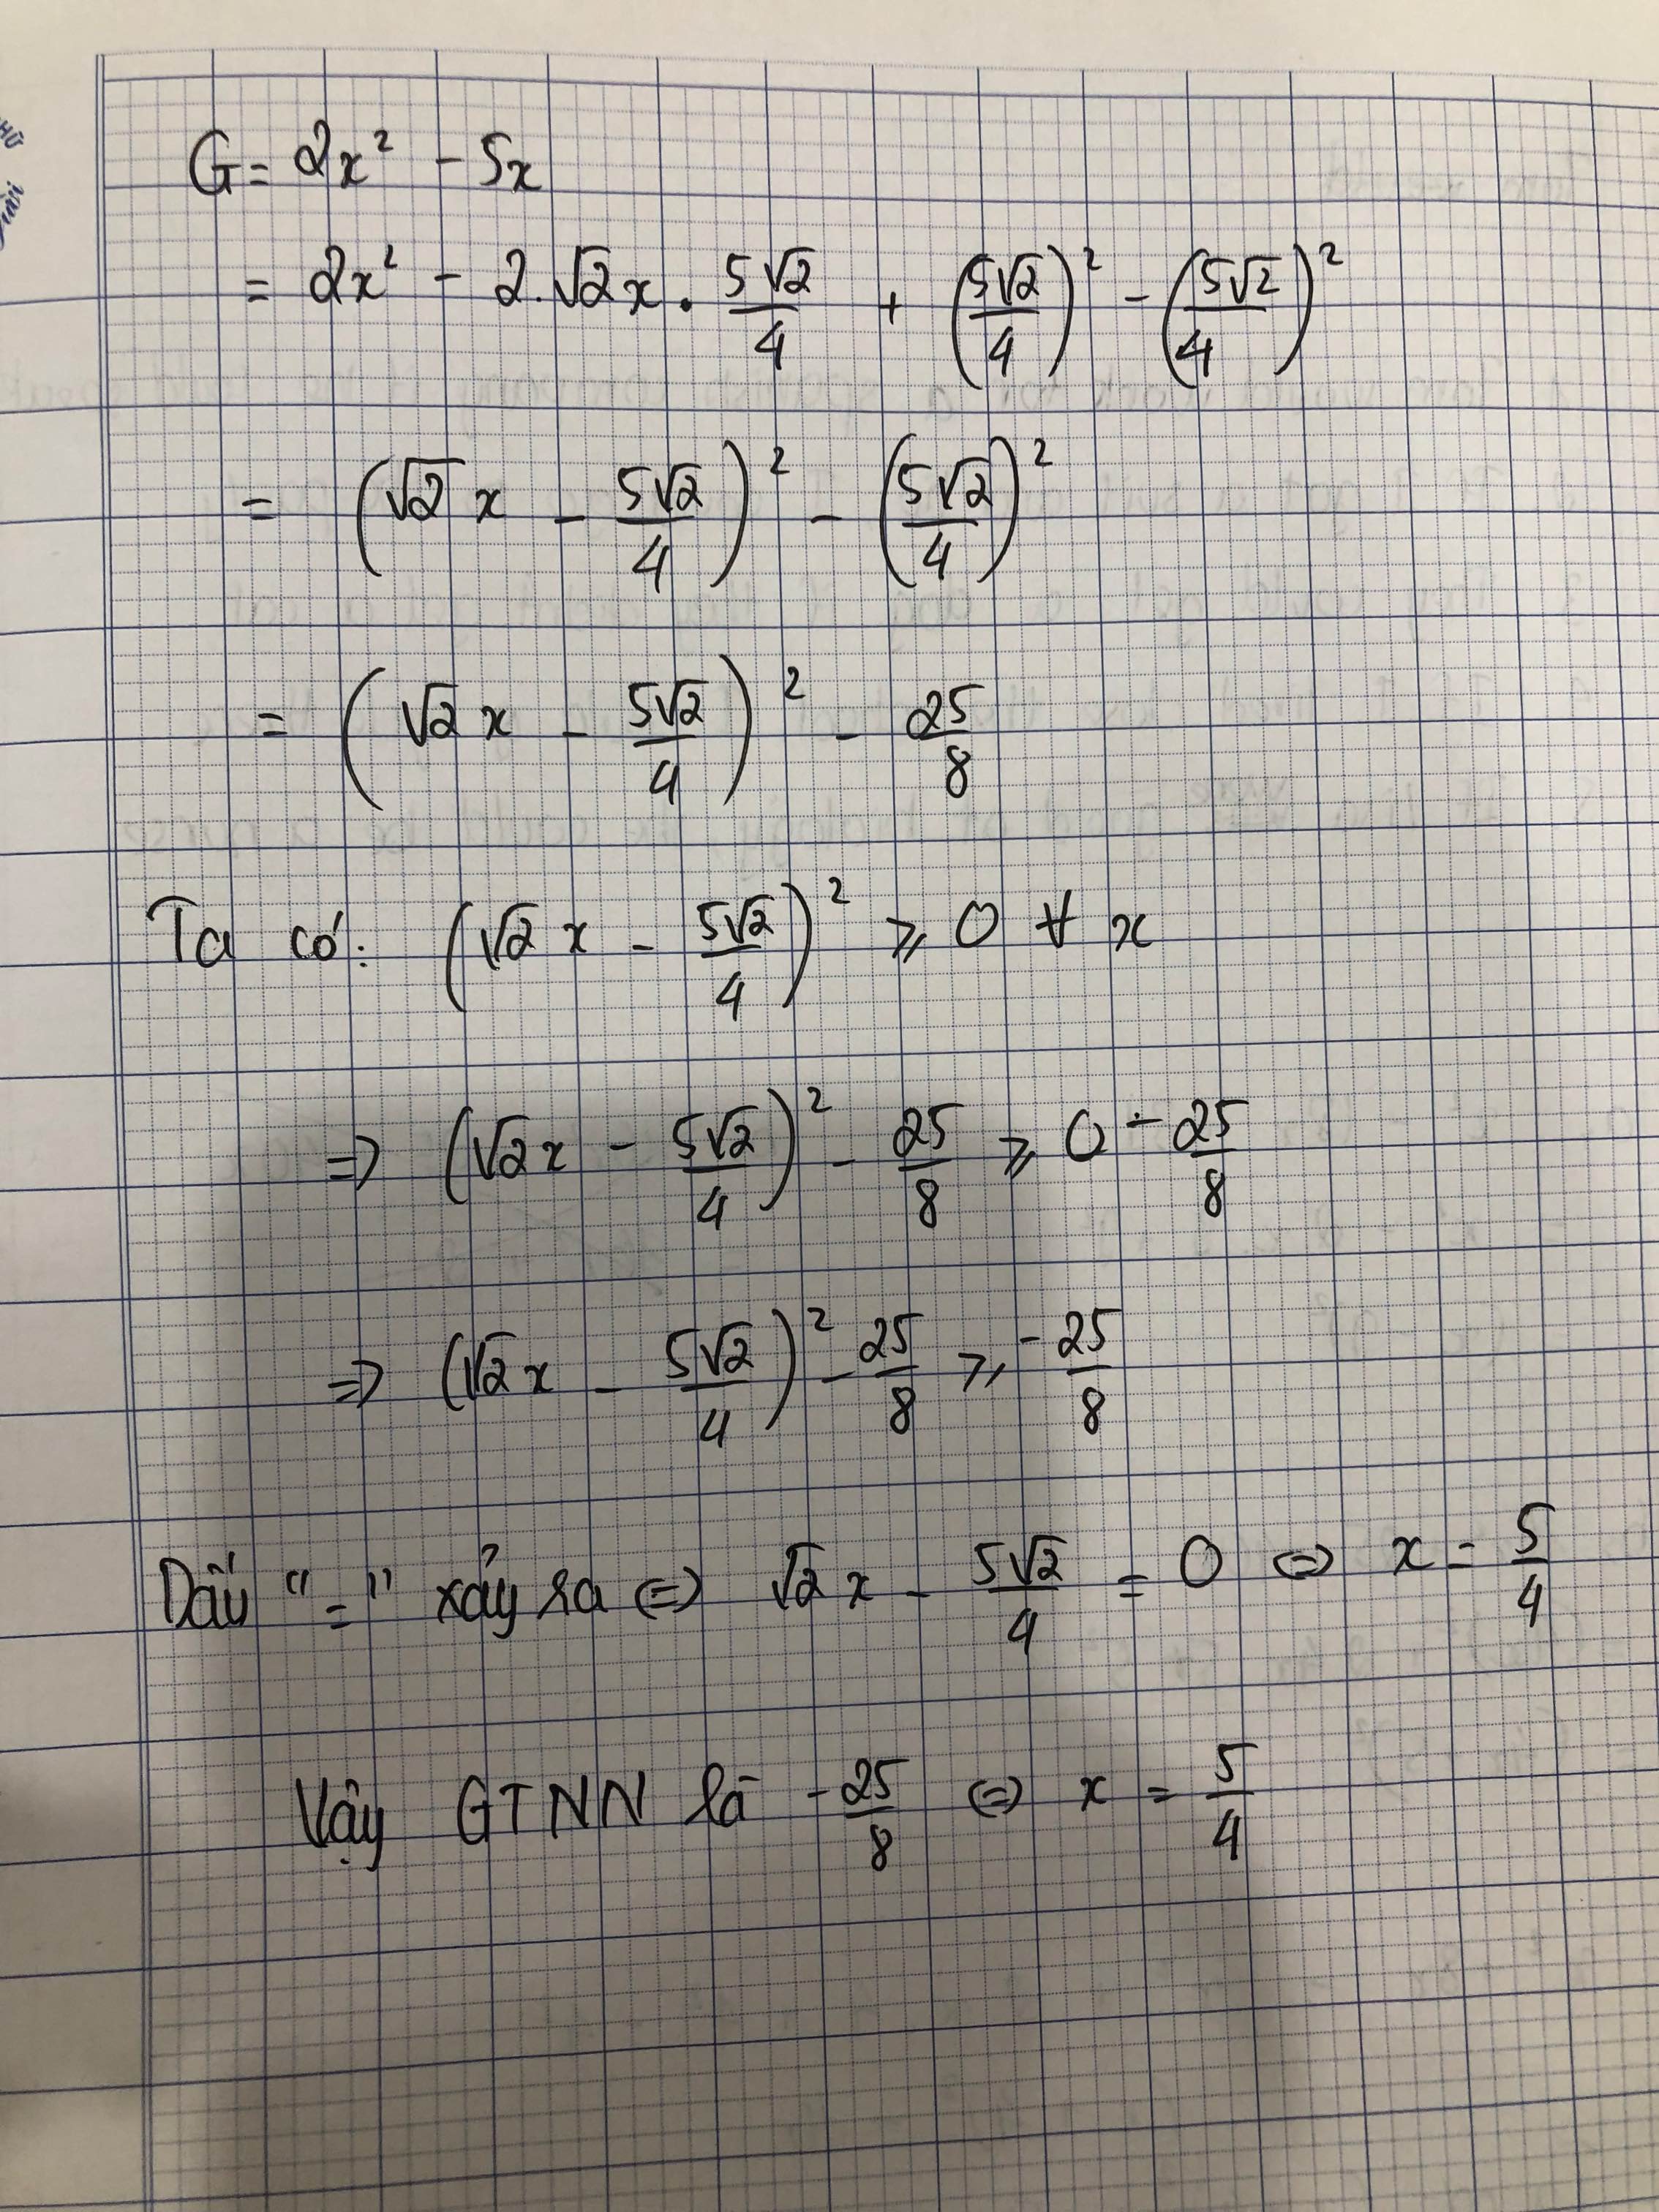 G = 2x² - 5x
= 2x² - 2.√2x . 5√2/4 + (5√2/4)² - (5√2/4)²
= (√2 x - 5√2/4)² - (5√2/4)²
= (√2 x - 5√2/4)² - 25/8
Ta có: (√2 x - 5√2/4)² ⩾ 0 ∀ x
=> (√2x - 5√2/4)² - 25/8 ⩾ 0 - 25/8
=> (√2x - 5√2/4)² - 25/8 ⩾ -25/8
Dấu "=" xảy ra <=> √2 x - 5√2/4 = 0 <=> x = 5/4
Vậy GTNN là -25/8 <=> x = 5/4